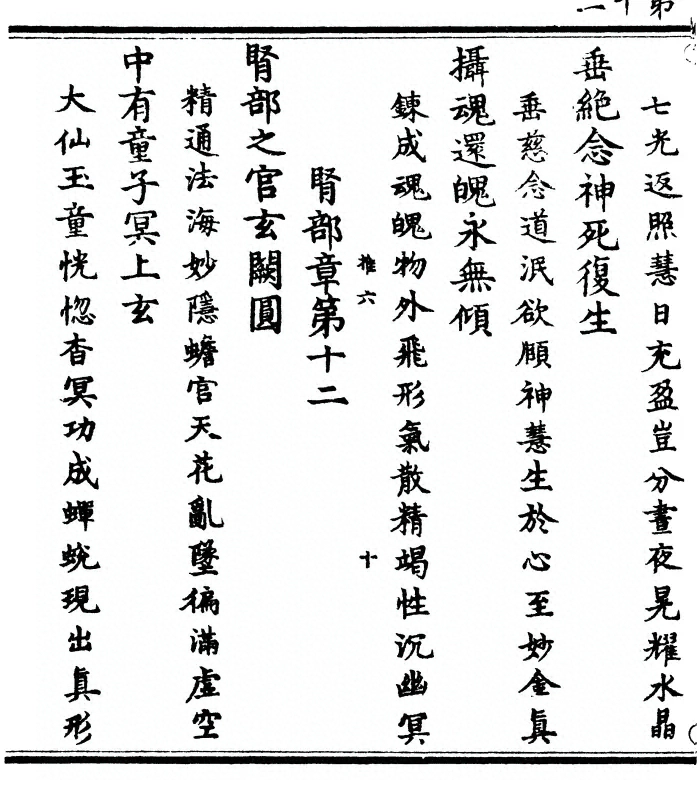 第十二
七光返照慧日充盈豈分晝夜晃耀水晶
垂絕念神死復生
垂慈念道泯欲願神慧生於心至妙金真
攝魂還魄永無傾
鍊成魂魄物外飛形氣散精竭性沉幽冥
推六
十
腎部章第十二
腎部之宮玄闕圓
精通法海妙隱蟾宮天花亂墜徧滿虛空
中有童子冥上玄
大仙玉童恍惚杳冥功成蟬蛻現出真形